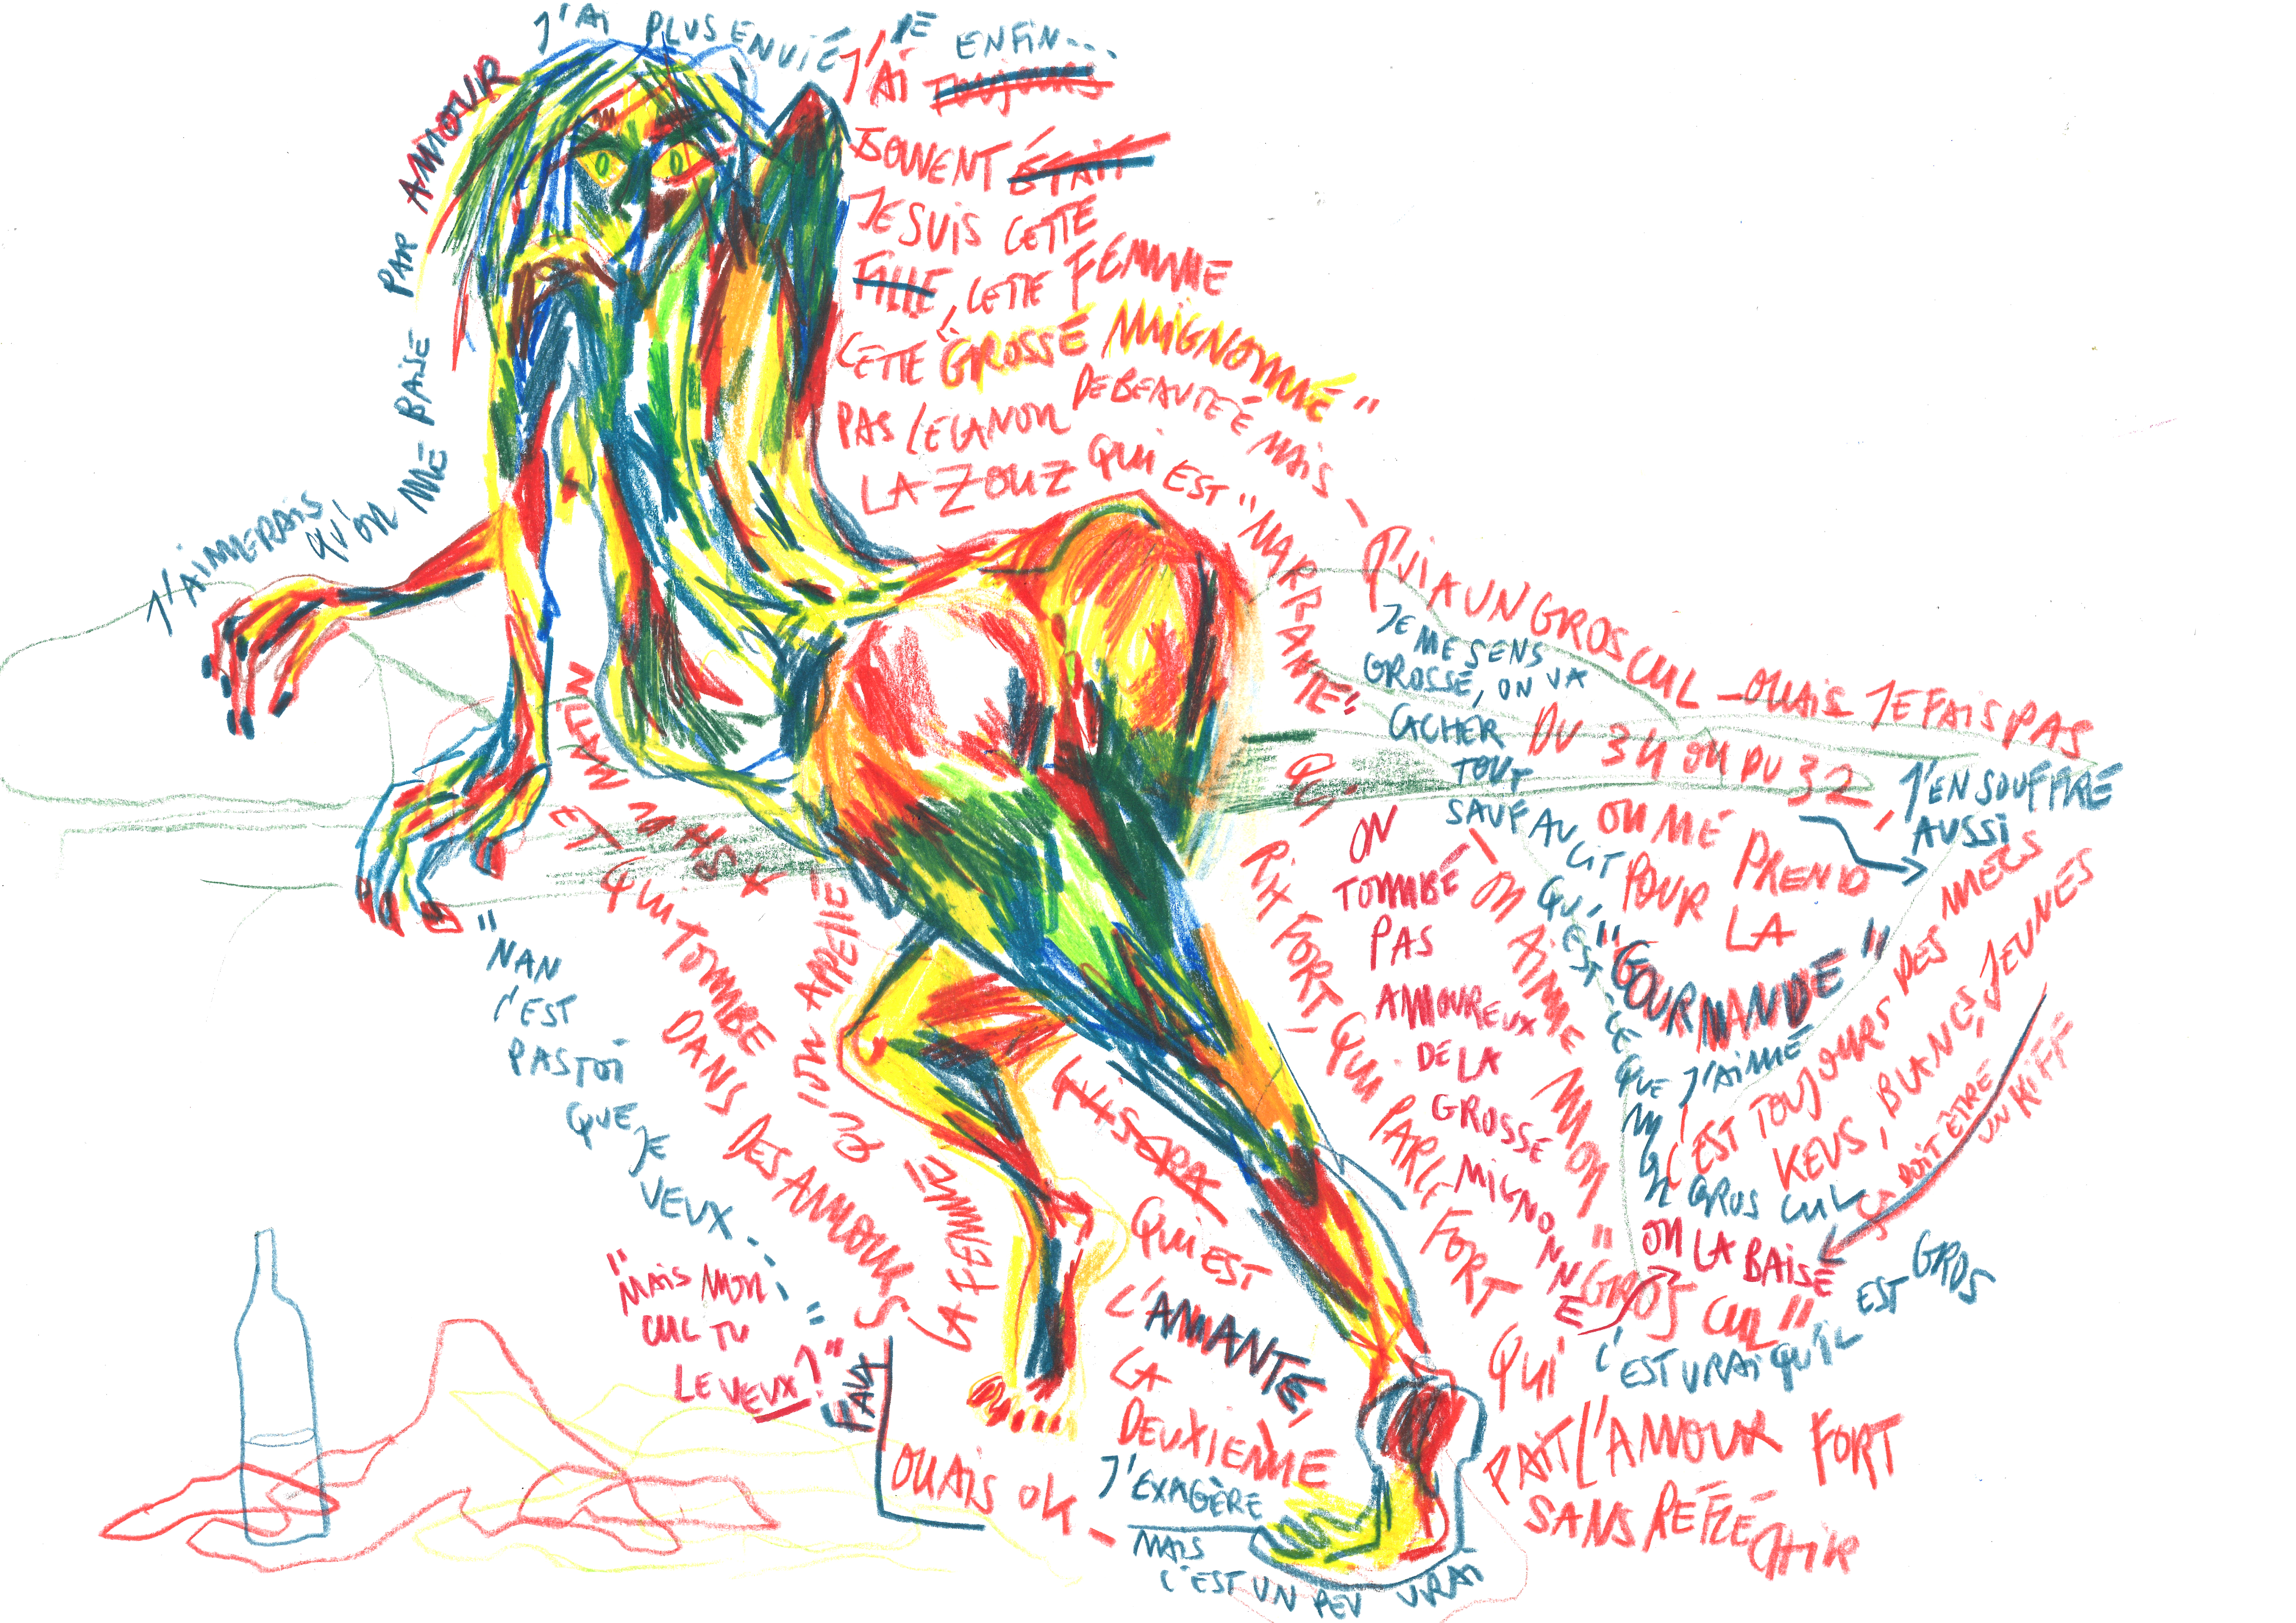 J'AI PLUS ENVIE DE ENFIN...
J'AI TOUJOURS
SOUVENT ÉTAIT
JE SUIS CETTE
FILLE, CETTE FEMME
CETTE "GROSSE MIGNONNE"
PAS LE CANON DE BEAUTEÉ MAIS –
LA ZOUZ QUI EST "MARRANTE"
QUI A UN GROS CUL – OUAIS JE FAIS PAS
DU 34 OU DU 32,
J'EN SOUFFRE
AUSSI
OU ME PREND
POUR LA
"GOURMANDE"
C'EST TOUJOURS DES MECS
KEUS, BLANCS, JEUNES
ÇA DOIT ÊTRE
UN KIFF
ON LA BAISE
JE ME SENS
GROSSE, ON VA
CACHER
TOUT
SAUF AU LIT
QU'EST-CE QUE J'AIME
MON GROS CUL
– ON AIME MON "GROS CUL"
C'EST VRAI QU'IL EST GROS
ON
TOMBE
PAS
AMOUREUX
DE LA
GROSSE
MIGNONNE
QUI RIT FORT, QUI PARLE FORT
QUI
FAIT L'AMOUR FORT
SANS RÉFLÉCHIR
QUI SERA
QUI EST
L'AMANTE,
LA
DEUXIEME
LA FEMME QU'ON APPELLE
ET QUI TOMBE
DANS DES AMOURS
FAUX
OUAIS OK –
J'EXAGÈRE
MAIS
C'EST UN PEU VRAI
"NAN
C'EST
PAS TOI
QUE JE
VEUX..."
"MAIS MON
CUL TU
LE VEUX?"
J'AIMERAIS
QU'ON ME BAISE PAR AMOUR